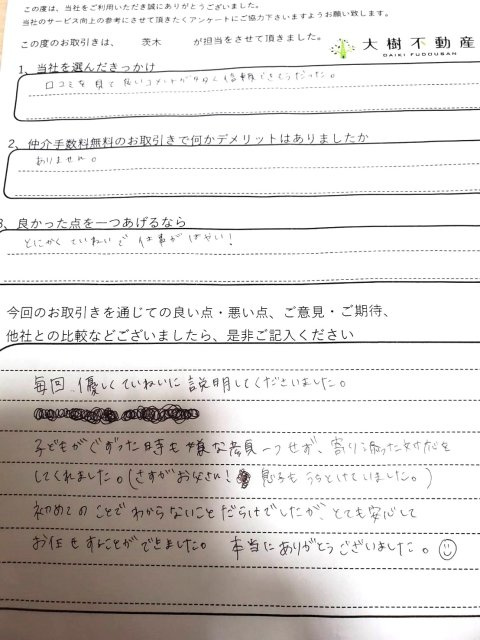 この度は、当社をご利用いただき誠にありがとうございました。
当社のサービス向上の参考にさせて頂きたくアンケートにご協力下さいますようお願い致します。
この度のお取引きは、 茨木 が担当をさせて頂きました。
大樹不動産
DAIKI FUDOUSAN
1、当社を選んだきっかけ
口コミを見て良いコメントが多く信頼できそうだった。
2、仲介手数料無料のお取引きで何かデメリットはありましたか
ありません。
3、良かった点を一つあげるなら
とにかくていねいで仕事がはやい！
今回のお取引きを通じての良い点・悪い点、ご意見・ご期待、
他社との比較などございましたら、是非ご記入ください
毎回、優しくていねいに説明してくださいました。
子どもがぐずった時も嫌な顔一つせず、寄り添った対応を
してくれました。(さすがお父さん！ 息子もうちとけていました。)
初めてのことでわからないことだらけでしたが、とても安心して
お任せすることができました。 本当にありがとうございました。